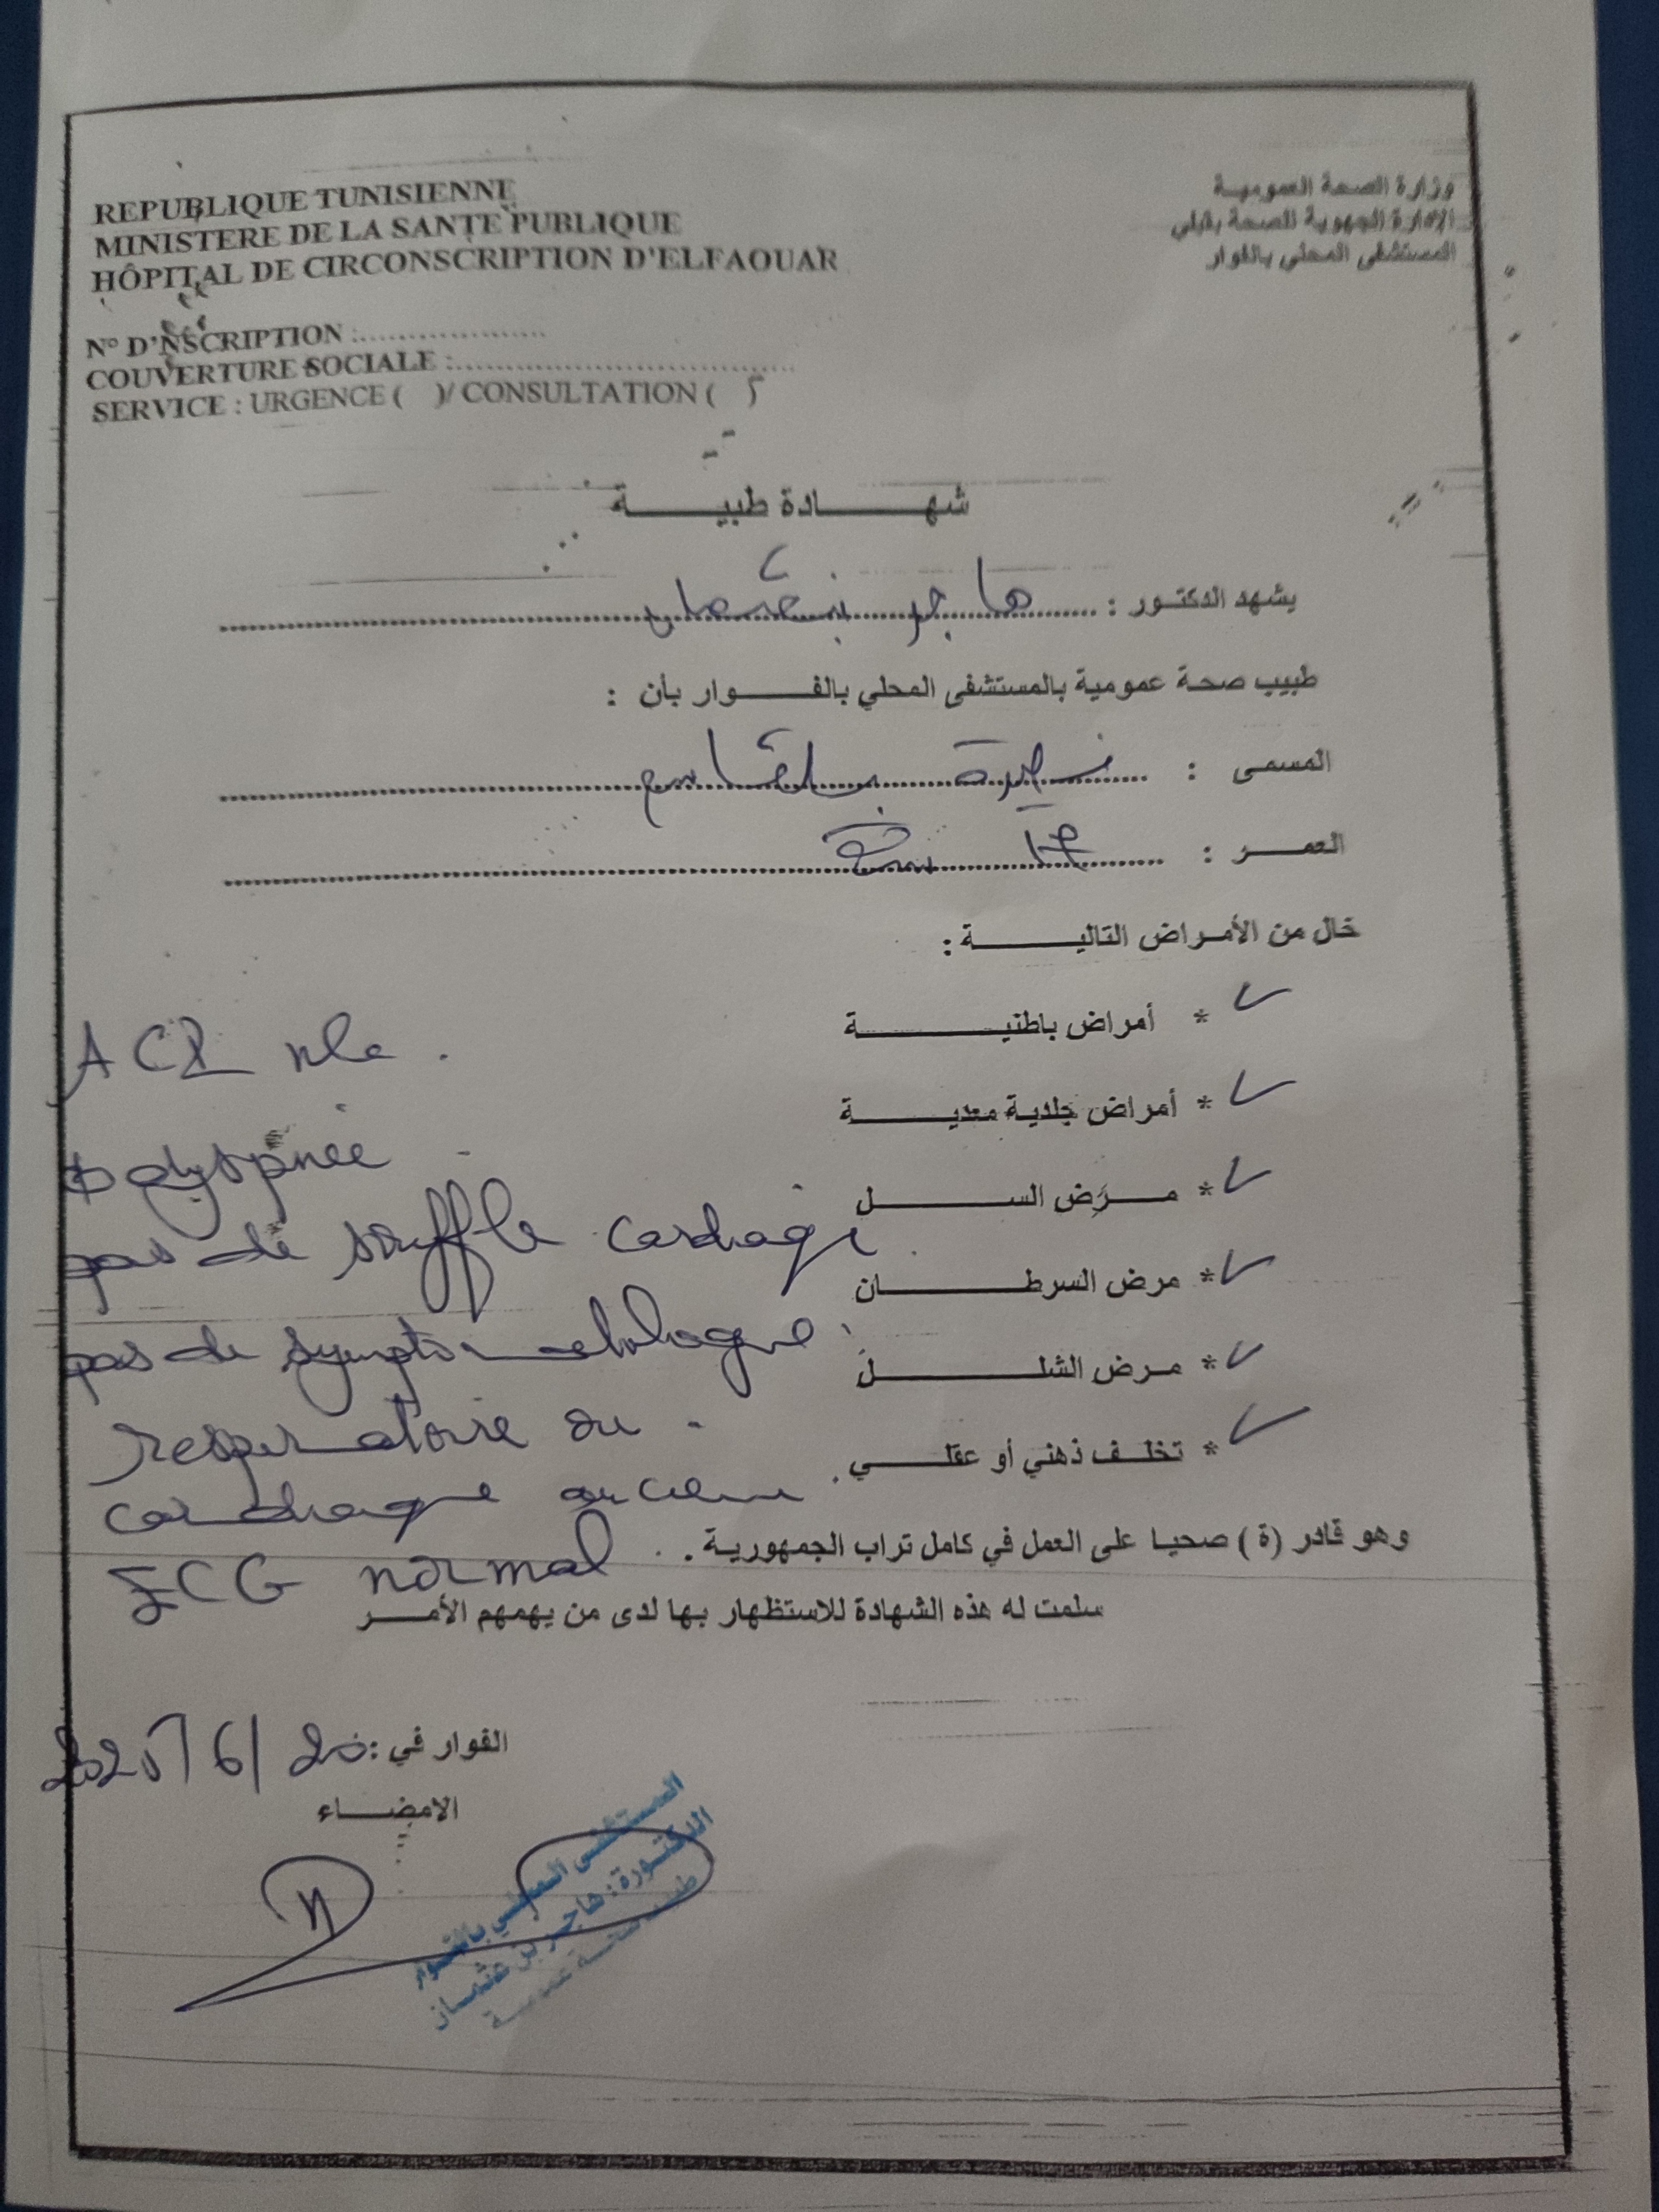 REPUBLIQUE TUNISIENNE
MINISTERE DE LA SANTE PUBLIQUE
HÔPITAL DE CIRCONSCRIPTION D'ELFAOUAR
وزارة الصحة العمومية
الإدارة الجهوية للصحة بقبلي
المستشفى المحلي بالفوار
N° D'NSCRIPTION :....................
COUVERTURE SOCIALE :....................
SERVICE : URGENCE ( )/ CONSULTATION ( )
شهــــادة طبيــــة
يشهد الدكتـور : هاجر بن عثمان
طبيب صحة عمومية بالمستشفى المحلي بالفــوار بأن :
المسمى : بلقاسم
العمــر : سنة
خال من الأمـراض التاليــــة :
* أمراض باطنيــــة
* أمراض جلدية معديــــة
* مــرض الســــل
* مرض السرطــــان
* مـرض الشلــــل
* تخلـف ذهني أو عقلــــي
ACR nle .
pas de souffle cardiaque
pas de symptomatologie
respiratoire ou
cardiaque ancienne
ECG normal
وهو قادر (ة) صحيا على العمل في كامل تراب الجمهورية .
سلمت له هذه الشهادة للاستظهار بها لدى من يهمهم الأمــر
الفوار في : 2025/6/20
الامضــاء
المستشفى المحلي بالفوار
الدكتورة : هاجر بن عثمان
طبيبة صحة عمومية